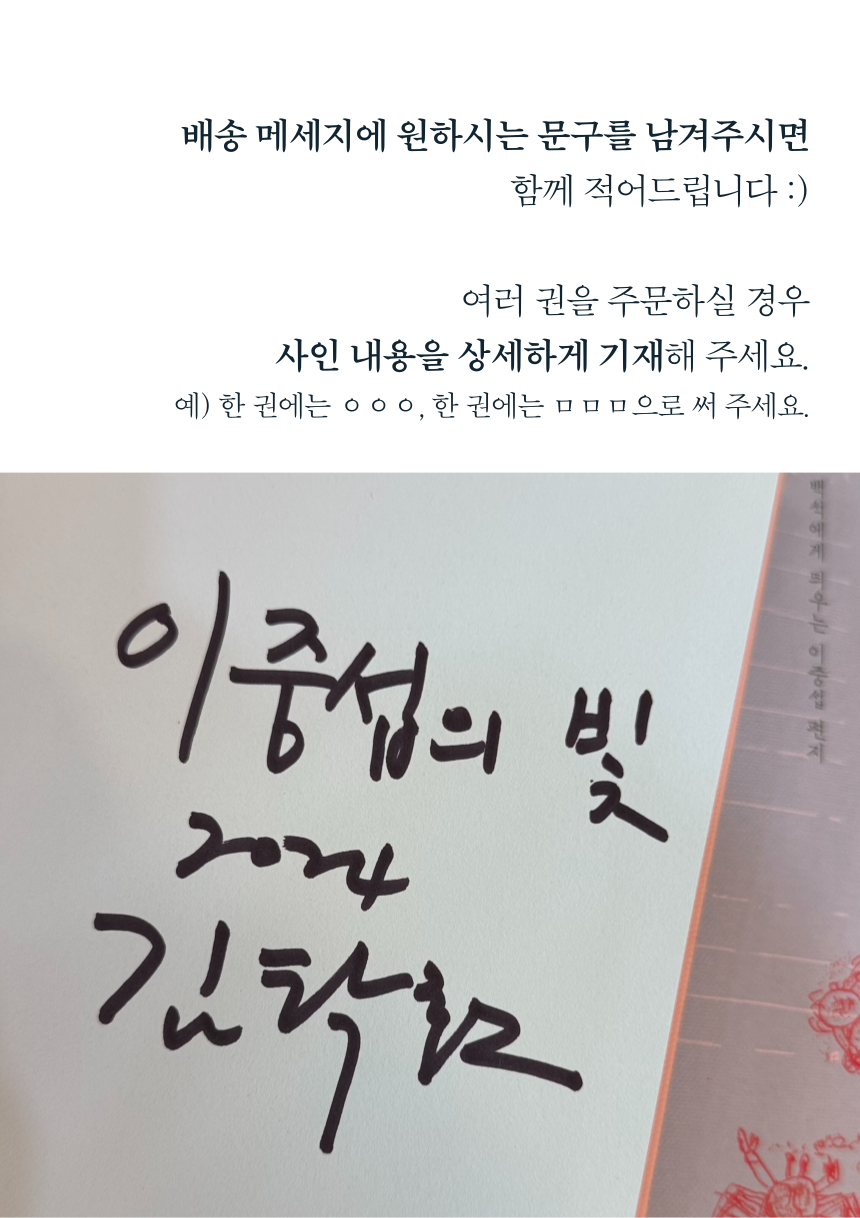 배송 메세지에 원하시는 문구를 남겨주시면
함께 적어드립니다 :)
여러 권을 주문하실 경우
사인 내용을 상세하게 기재해 주세요.
예) 한 권에는 ㅇㅇㅇ, 한 권에는 ㅁㅁㅁ으로 써 주세요.
이중섭의 빛
2024
김탁환
백석에게 띄우는 이중섭 편지